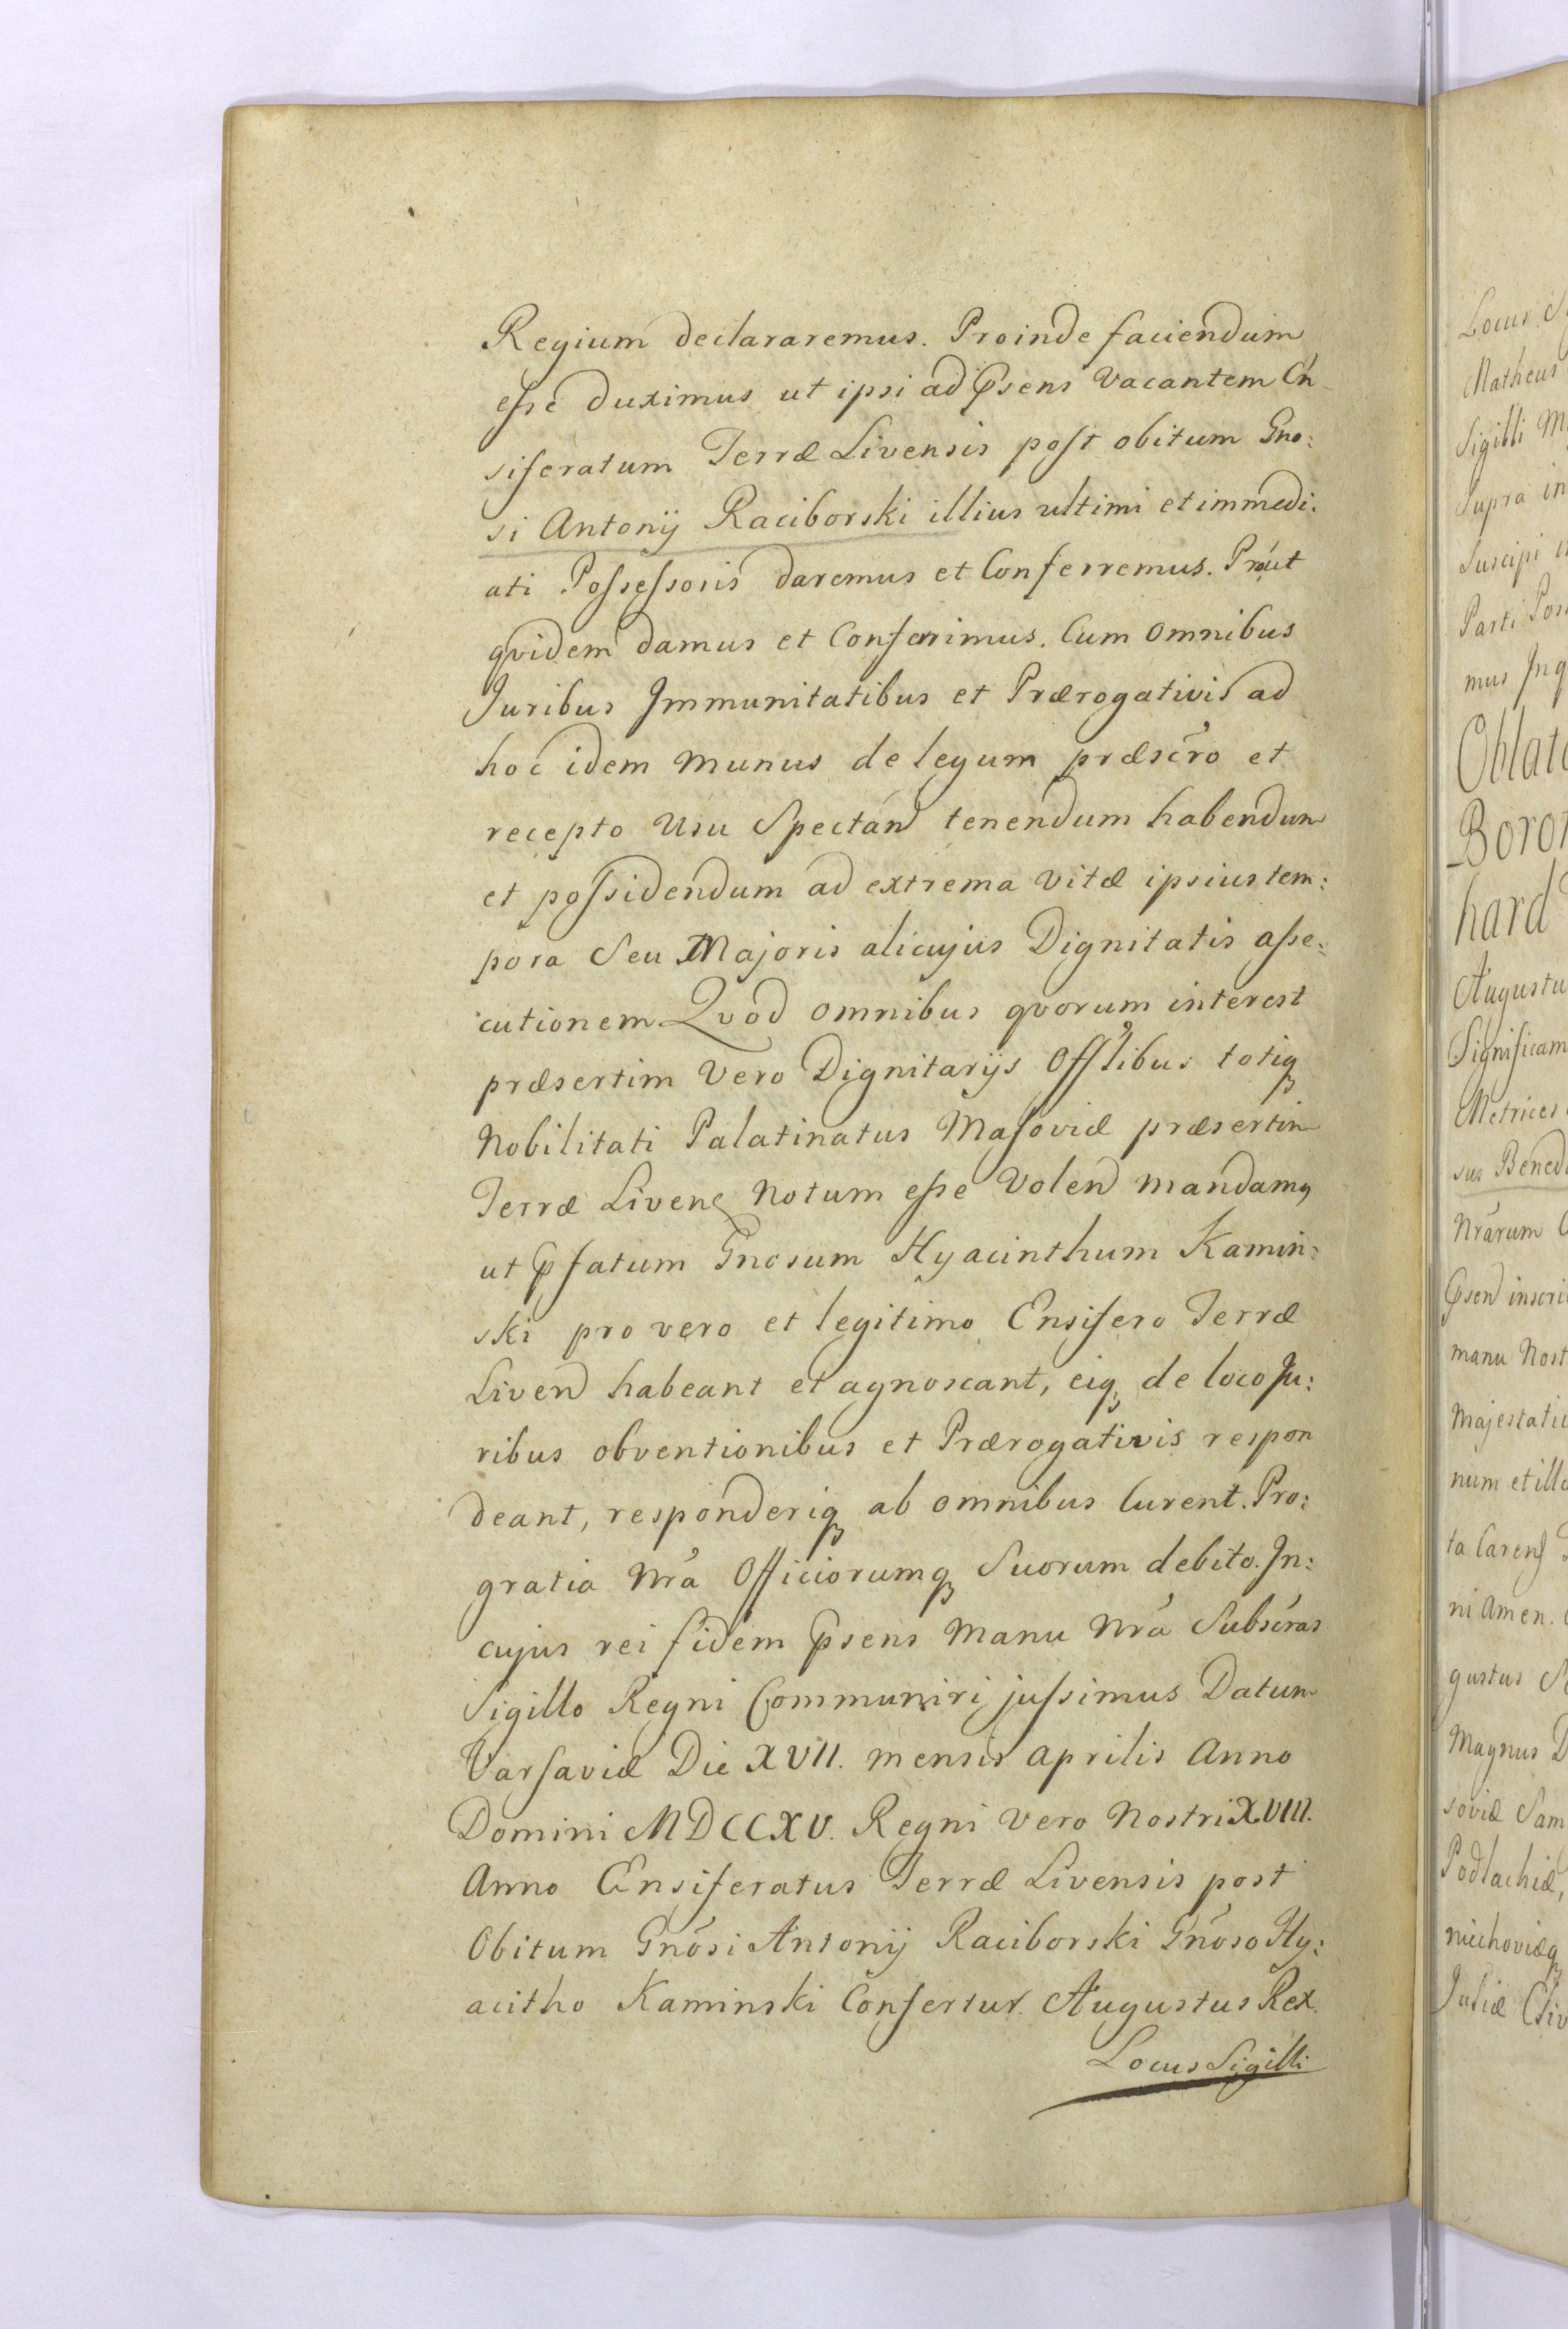 Regium declararemus. Proinde faciendum
esse duximus ut ipsi ad Psens Vacantem En-
siferatum Terræ Livensis post obitum Gno:
si Antonij Raciborski illius ultimi et immedi:
ati Possessoris daremus et Conferremus. Prout
qvidem damus et Conferimus. Cum Omnibus
Juribus Immunitatibus et Prærogativis ad
hoc idem munus de legum præscro et
recepto Usu Spectand tenendum habendum
et possidendum ad extrema vitæ ipsius tem:
pora Seu Majoris alicujus Dignitatis asse:
cutionem Qvod omnibus qvorum interest
præsertim Vero Dignitarijs Offlibus totiq
Nobilitati Palatinatus Masoviæ præsertim
Terræ Livens Notum esse Volend mandamq
ut Pfatum Gnosum Hyacinthum Kamin:
ski pro vero et legitimo Ensifero Terræ
Liven habeant et agnoscant, eiq de loco Ju:
ribus obventionibus et Prærogativis respon
deant, responderiq ab omnibus Curent. Pro:
gratia Nra Officiorumq Suorum debito. In:
cujus rei fidem Psens Manu Nra Subscras
Sigillo Regni Communiri jussimus Datum
Varsaviæ Die XVII. mensis Aprilis Anno
Domini MDCCXV. Regni Vero Nostri XVIII.
Anno Ensiferatus Terræ Livensis post
Obitum Gnosi Antonij Raciborski Gnoso Hy:
acitho Kaminski Confertur. Augustus Rex.
Locus Sigilli
Locus
Matheus
Sigilli
Supra in
Suscipi
Parti
mus
Oblat
Boro
hard
Augustu
Significam
Metrices
sus Bened
Nrarum
Psen inscri
manu Nost
Majestatis
num et illo
ta Carens
ni Amen.
gustus
Magnus D
soviæ Sam
Podlachiæ,
niechoviæq